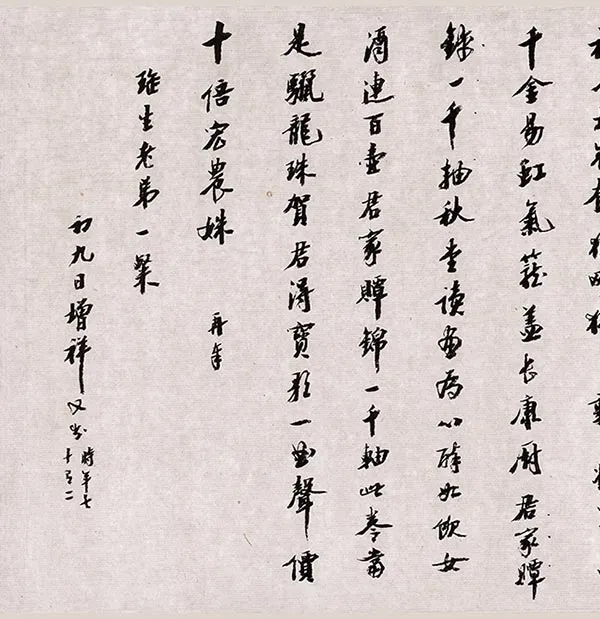 千金易虹氣籠蓋長康厨君家贉
錦一千抽秋堂讀畫為心醉如飲女
酒連百壺君家贉錦一千軸此卷當
是驪龍珠賀君得寶歌一曲聲價
十倍宏農姝 再
生老弟一粲
初九日增祥又 時年七
十有二